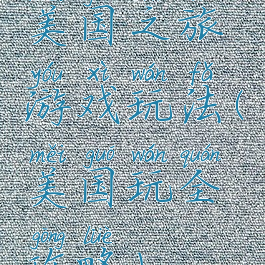 美国之旅
yóu xì wán fǎ
游戏玩法(
měi guó wán quán
美国玩全
gōng lüè
攻略)